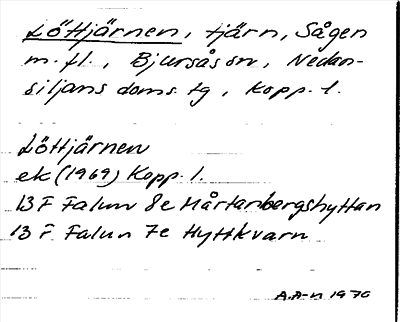 Löttjärnen, tjärn, Sågen
m.fl., Bjursås sn, Nedan-
siljans doms. tg, Kopp. l.
Löttjärnen
ek (1969) Kopp. l.
13 F Falun 8e Mårtanbergshyttan
13 F Falun 7e Hyttkvarn
A.A-n 1970